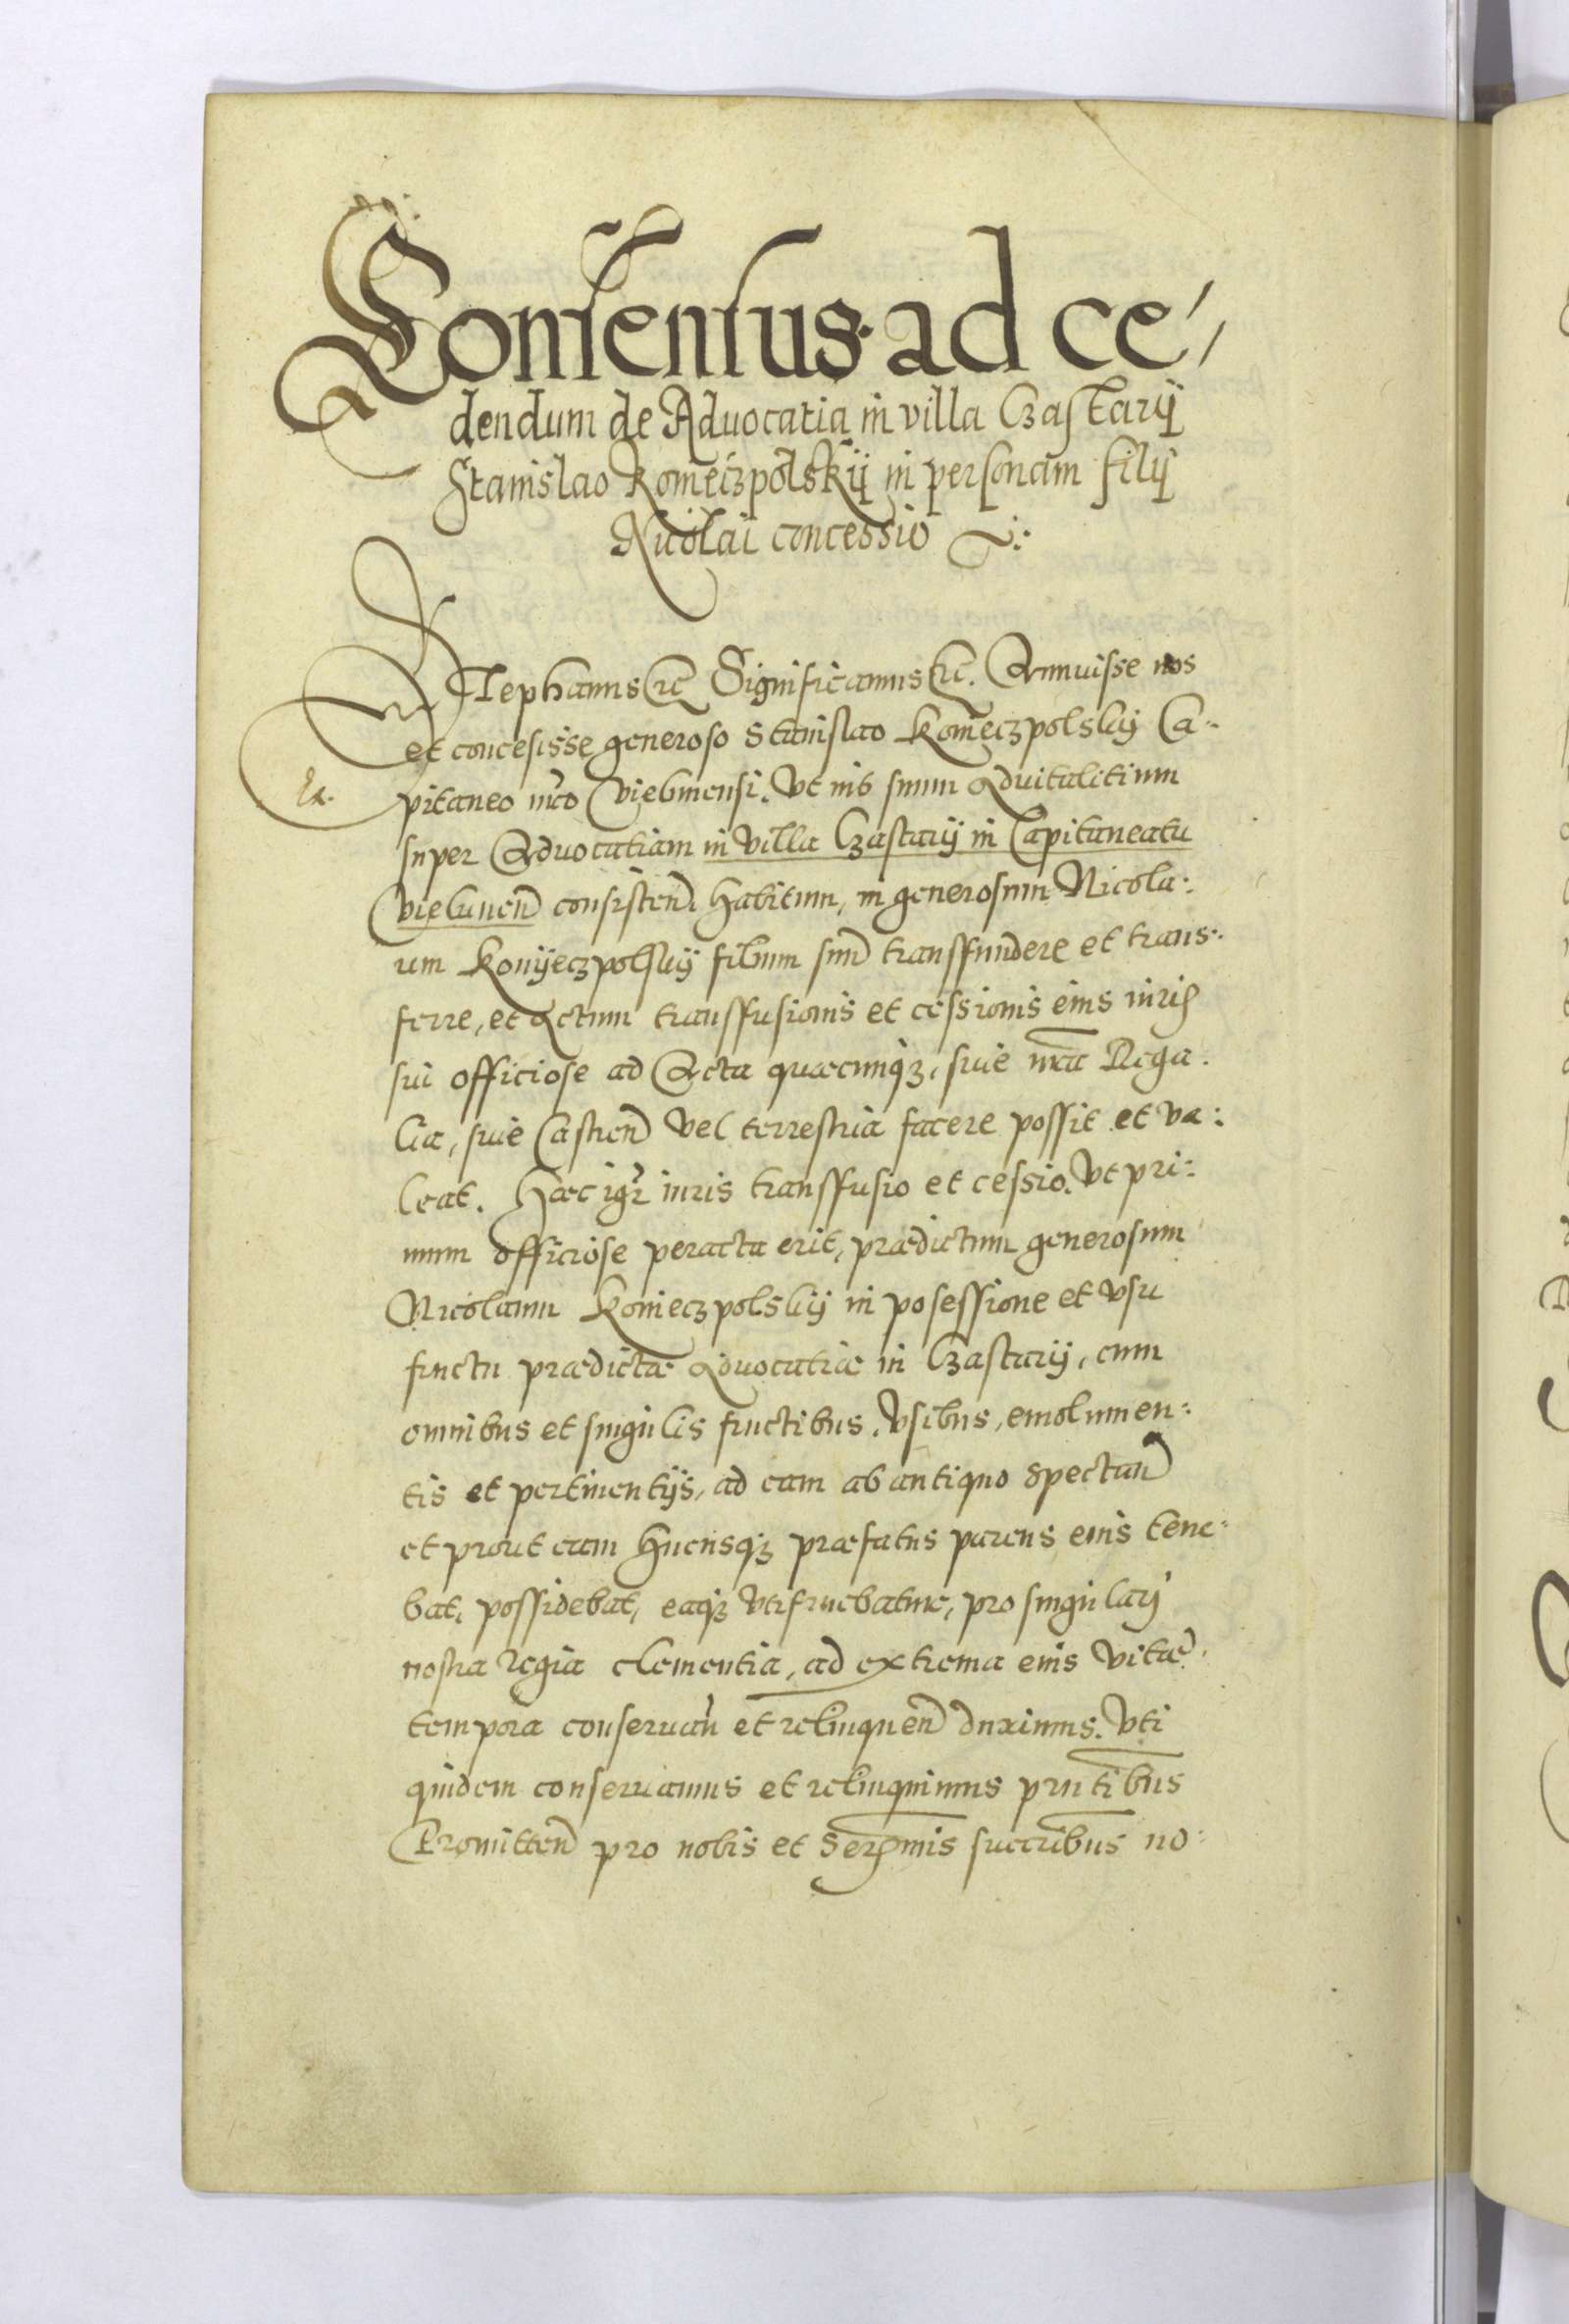 Consensus ad ce,,
dendum de Aduocatia in villa Czastarÿ
Stanislao Koniéczpolskÿ in personam filÿ
Nicolai concessio
Stephanus etc̃ Significamus etc̃. Annuisse nos
et concesisse generoso Stanislao Koniéczpolskÿ Ca-
pitaneo nr̃o Vielunensi. Vt ius suum Aduitalitium
super Aduocatiam in villa Czastarÿ in Capitaneatu
Vielunen̄ consisten̄. habitum, in generosum Nicola:
um Konÿeczpolskÿ filium suū transfundere et trans:
ferre, et Actum transfusionis et cessionis eius iuris
sui officiose ad Acta quæcunq3, siue nr̃a Rega.
lia, siue Castren̄ vel terrestria facere possit et va:
leat. Hæc igr̃ iuris transfusio et cessio. Vt pri:
mum officiose peracta erit, prædictum generosum
Nicolaum Konieczpolskÿ in posessione et vsu
fructu prædictæ Aduocatiæ in Czastarÿ, cum
omnibus et singulis fructibus. Vsibus, emolumen:
tis et pertinentÿs, ad eam ab antiquo spectan̄
et prout eam hucusq3 præfatus parens eius tene:
bat, possidebat, eaq3 vtifruebatur, pro singularj
nostra Regia clementia, ad extrema eius vitæ
tempora conseruan̄ et relinquen̄ duximus. Vti
quidem conseruamus et relinquimus pr̄ntibus
Promitten̄ pro nobis et Serm̄is succr̄ibus no: